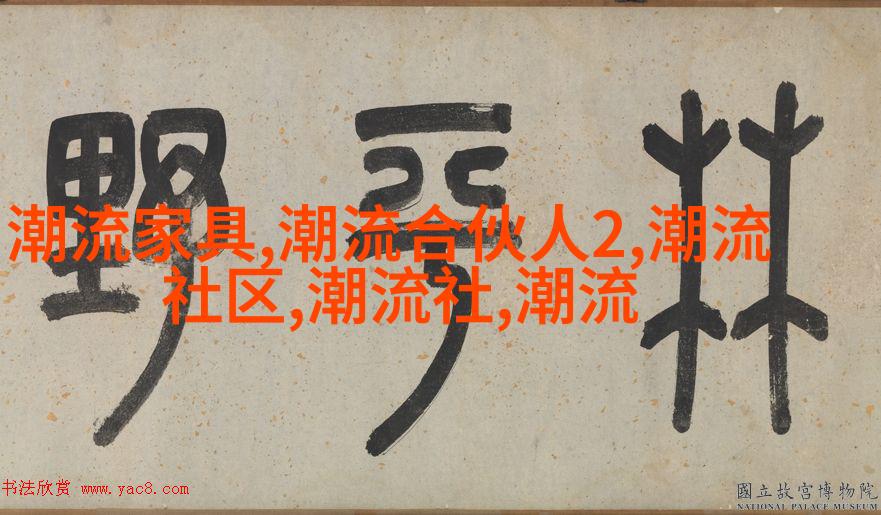 林平野
潮流家具,潮流合伙人2,潮流
社区,潮流社,潮流
书法欣赏 www.yac8.com
國立故宮博物院
NATIONAL PALACE MUSEUM